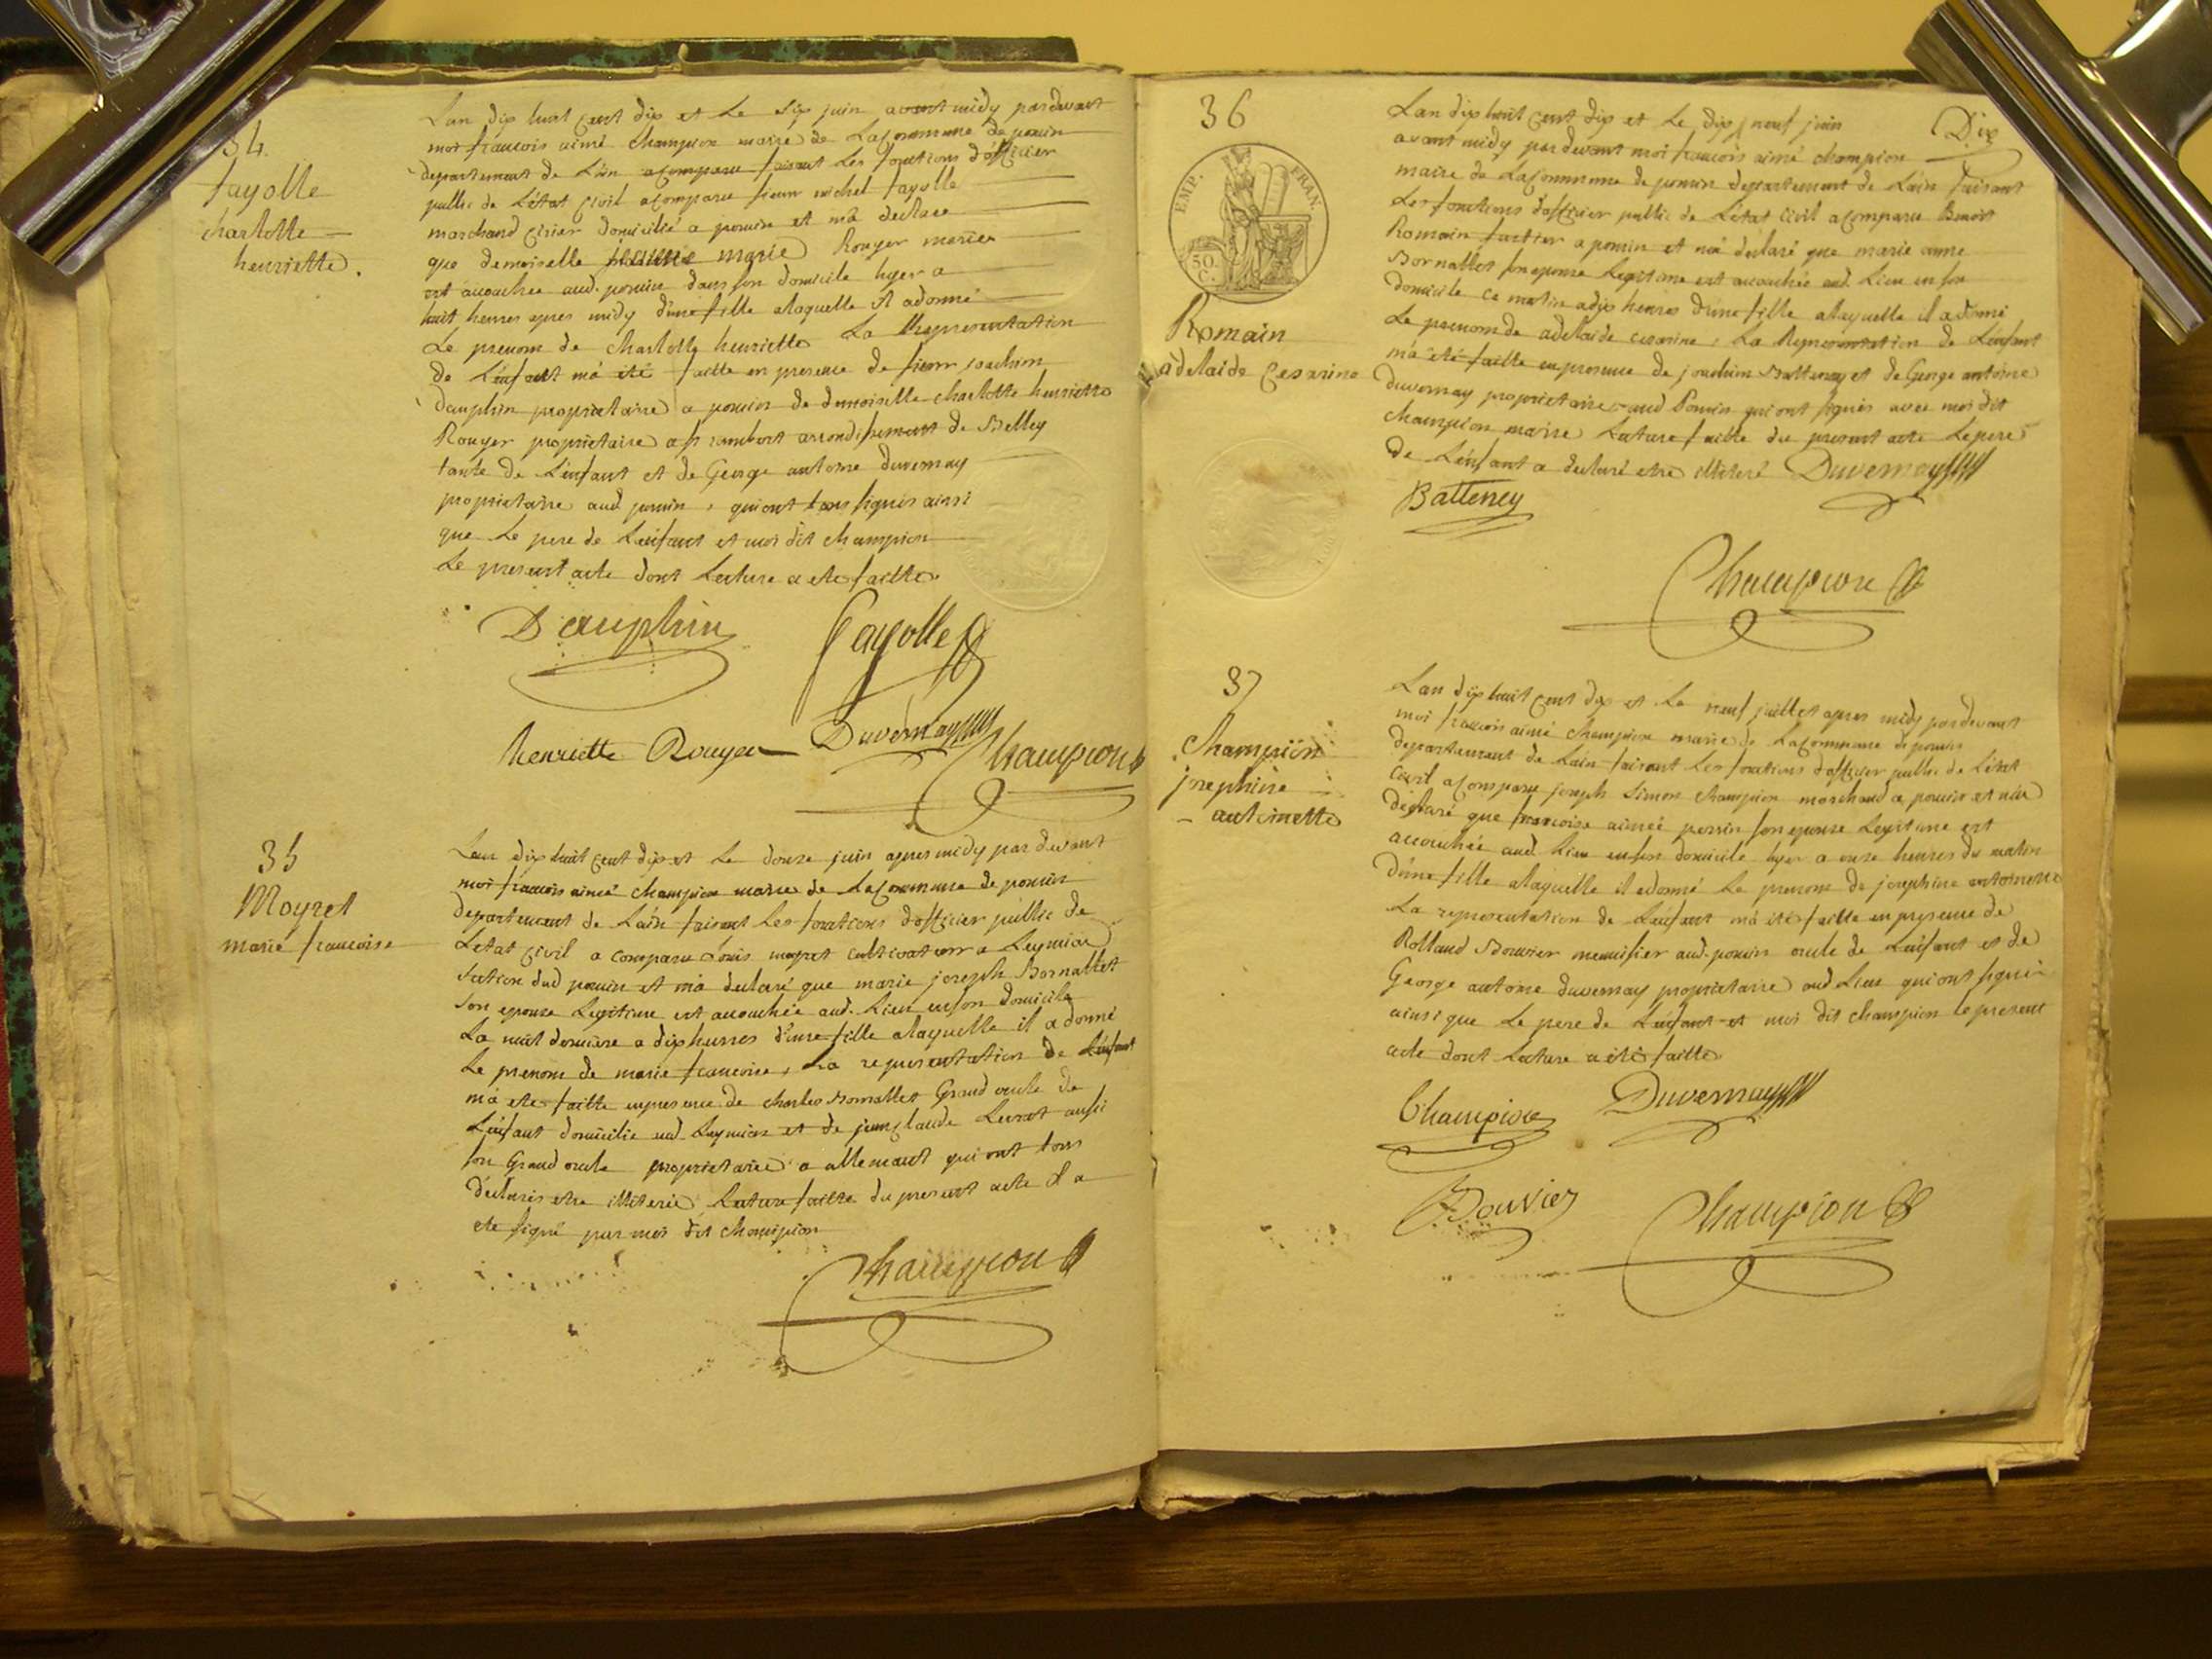 34
fayolle
charlotte
henriette.
Lan dix huit cent dix et le six juin avant midy pardevant
moi francois aimé champion maire de la commune de poncin
departement de Lain acomparu faisant les fonctions d'officier
public de L'état civil acomparu sieur michel fayolle
marchand cirier domicilié a poncin et m'a declare
que demoiselle marie Rouyer mariee
est accouchee aud. poncin dans son domicile hyer a
huit heures apres midy d'une fille alaquelle il adonné
Le prenom de charlotte henriette La Representation
de L'enfant m'a eté faitte en presence de sieur joachim
dauphin proprietaire a poncin de demoiselle charlotte henriette
Rouyer proprietaire a st rambert arrondissement de Belley
tante de L'enfant et de George antoine duvernay
proprietaire aud poncin, qui ont tous signés ainsi
que Le pere de L'enfant et moi dit champion
Le present acte dont Lecture a ete faitte
Dauphin
Fayolle
henriette Rouyer
Duvernay
Champion
35
Moyret
marie francoise
Lan dix huit cent dix et Le douze juin apres midy pardevant
moi francois aimé champion maire de La commune de poncin
departement de Lain faisant Les fonctions d'officier public de
Letat civil a comparu Louis moyret cultivateur a Leymiac
section dud poncin et m'a declaré que marie joseph Bornallet
son epouse Legitime est accouchée aud. Lieu en son domicile
La nuit derniere a dix heures d'une fille alaquelle il a donné
Le prenom de marie francoise, La representation de L'enfant
m'a ete faitte en presence de charles Bornallet Grand oncle de
L'enfant domicilié aud Leymiac et de jean claude Livrat aussi
son Grand oncle proprietaire a allemant qui ont tous
déclarés etre illiterés, Lecture faitte du present acte il a
ete signé par moi dit champion
Champion
36
Dix
EMP. FRAN.
50 C.
Romain
adelaide cesarine
Lan dix huit cent dix et Le dix neuf juin
avant midy pardevant moi francois aimé champion
maire de La commune de poncin departement de Lain faisant
Les fonctions d'officier public de L'état Civil acomparu Benoit
Romain a poncin et m'a declaré que marie anne
Bornallet son epouse Legitime est accouchée aud. Lieu en son
domicile ce matin a dix heures d'une fille alaquelle il a donné
Le prenom de adelaide cesarine, La Representation de L'enfant
m'a été faitte en presence de joachim Batteney et de George antoine
duvernay proprietaires aud Poncin qui ont signés avec moi dit
champion maire Lecture faitte du present acte Le pere
de L'enfant a declaré etre illiteré
Duvernay
Batteney
Champion
37
Champion
josephine
antoinette
Lan dix huit cent dix et Le neuf juillet apres midy pardevant
moi francois aimé champion maire de La commune de poncin
departement de Lain faisant Les fonctions d'officier public de L'état
Civil acomparu joseph simon champion marchand a poncin et m'a
déclaré que francoise aimée perrin son epouse Legitime est
accouchée aud Lieu en son domicile hyer a onze heures du matin
D'une fille alaquelle il adonné Le prenom de josephine antoinette
La representation de L'enfant m'a été faitte en presence de
Rolland Bouvier menuisier aud. poncin oncle de L'enfant et de
George antoine duvernay proprietaire aud Lieu qui ont signés
ainsi que Le pere de L'enfant et moi dit champion Le present
acte dont Lecture a été faitte
Champion
Duvernay
Bouvier
Champion